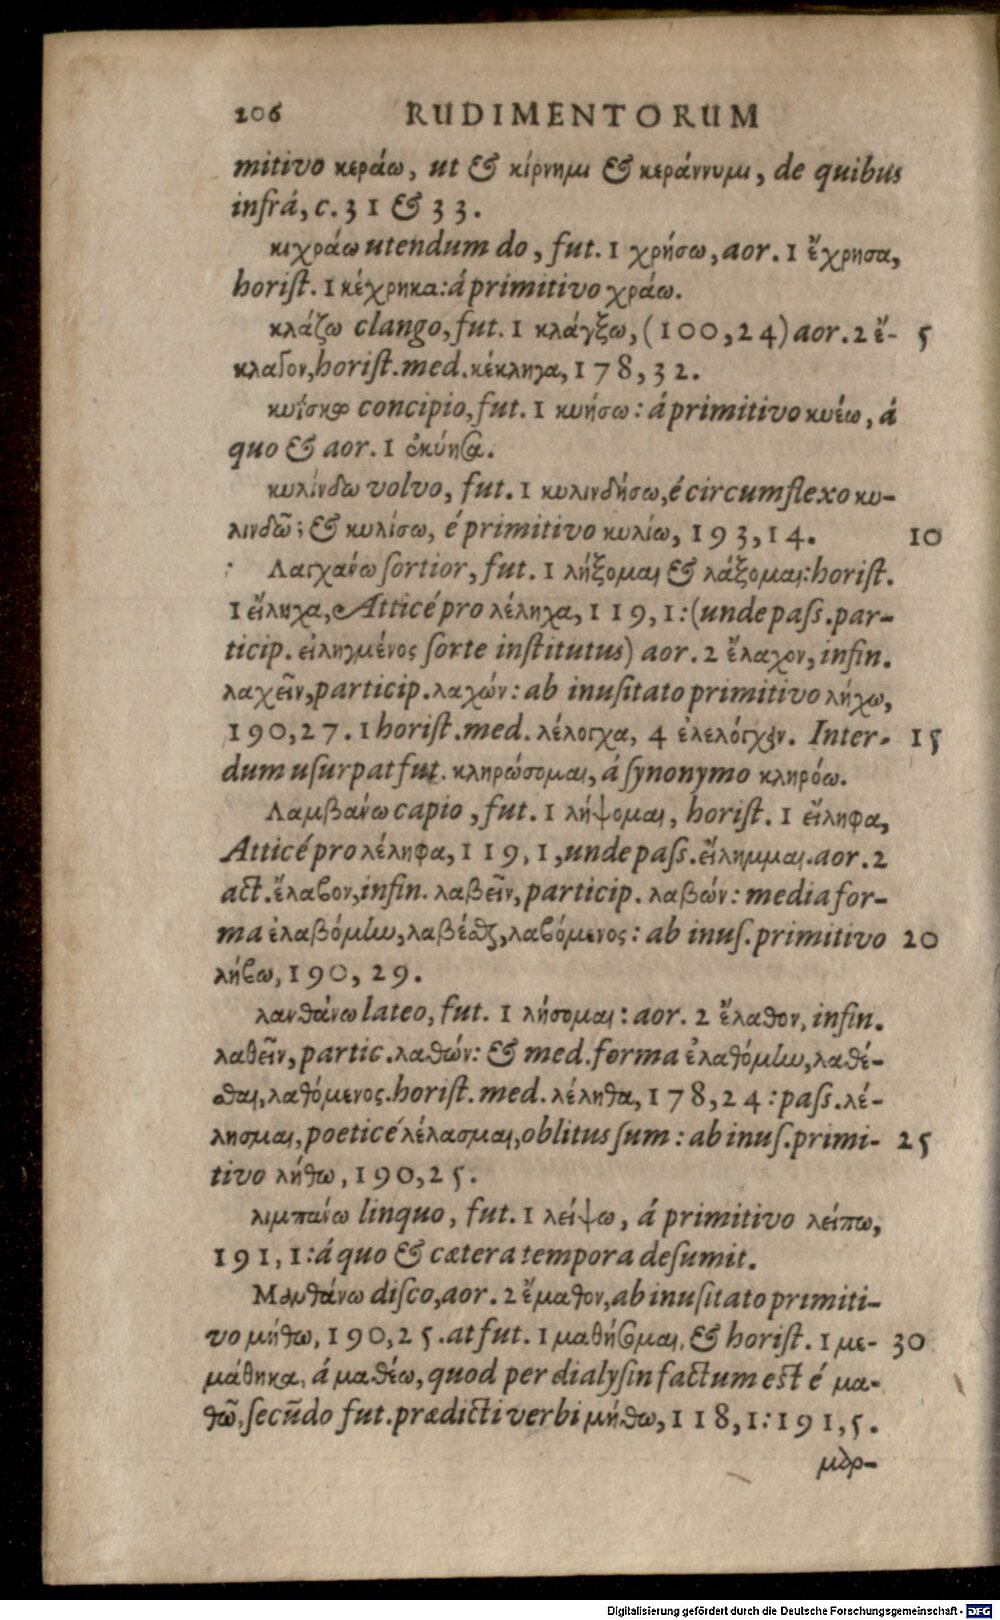 206 RUDIMENTORUM
mitivo κεράω, ut & κίρνημι & κεράννυμι, de quibus
infrá, c. 31 & 33.
κιχράω utendum do, fut. 1 χρήσω, aor. 1 ἔχρησα,
horist. 1 κέχρηκα: á primitivo χράω.
κλάζω clango, fut. 1 κλάγξω, (100, 24) aor. 2 ἔ- 5
κλαγον, horist. med. κέκληγα, 178, 32.
κυΐσκω concipio, fut. 1 κυήσω: á primitivo κυέω, á
quo & aor. 1 ἐκύησα.
κυλίνδω volvo, fut. 1 κυλινδήσω, é circumflexo κυ-
λινδῶ; & κυλίσω, é primitivo κυλίω, 193, 14. 10
Λαγχάνω sortior, fut. 1 λήξομαι & λάξομαι: horist.
1 εἴληχα, Atticé pro λέληχα, 119, 1: (unde pass. par-
ticip. εἰληγμένος sorte institutus) aor. 2 ἔλαχον, infin.
λαχεῖν, particip. λαχών: ab inusitato primitivo λήχω,
190, 27. 1 horist. med. λέλογχα, 4 ἐλελόγχειν. Inter- 15
dum usurpat fut. κληρώσομαι, á synonymo κληρόω.
Λαμβάνω capio, fut. 1 λήψομαι, horist. 1 εἴληφα,
Atticé pro λέληφα, 119, 1, unde pass. εἴλημμαι. aor. 2
act. ἔλαβον, infin. λαβεῖν, particip. λαβών: media for-
ma ἐλαβόμην, λαβέσθαι, λαβόμενος: ab inus. primitivo 20
λήβω, 190, 29.
λανθάνω lateo, fut. 1 λήσομαι: aor. 2 ἔλαθον, infin.
λαθεῖν, partic. λαθών: & med. forma ἐλαθόμην, λαθέ-
σθαι, λαθόμενος. horist. med. λέληθα, 178, 24: pass. λέ-
λησμαι, poeticé λέλασμαι, oblitus sum: ab inus. primi- 25
tivo λήθω, 190, 25.
λιμπάνω linquo, fut. 1 λείψω, á primitivo λείπω,
191, 1: á quo & cætera tempora desumit.
Μανθάνω disco, aor. 2 ἔμαθον, ab inusitato primiti-
vo μήθω, 190, 25. at fut. 1 μαθήσομαι, & horist. 1 με- 30
μάθηκα, á μαθέω, quod per dialysin factum est é μα-
θῶ, secũdo fut. prædicti verbi μήθω, 118, 1: 191, 5.
μαρ-
Digitalisierung gefördert durch die Deutsche Forschungsgemeinschaft - DFG